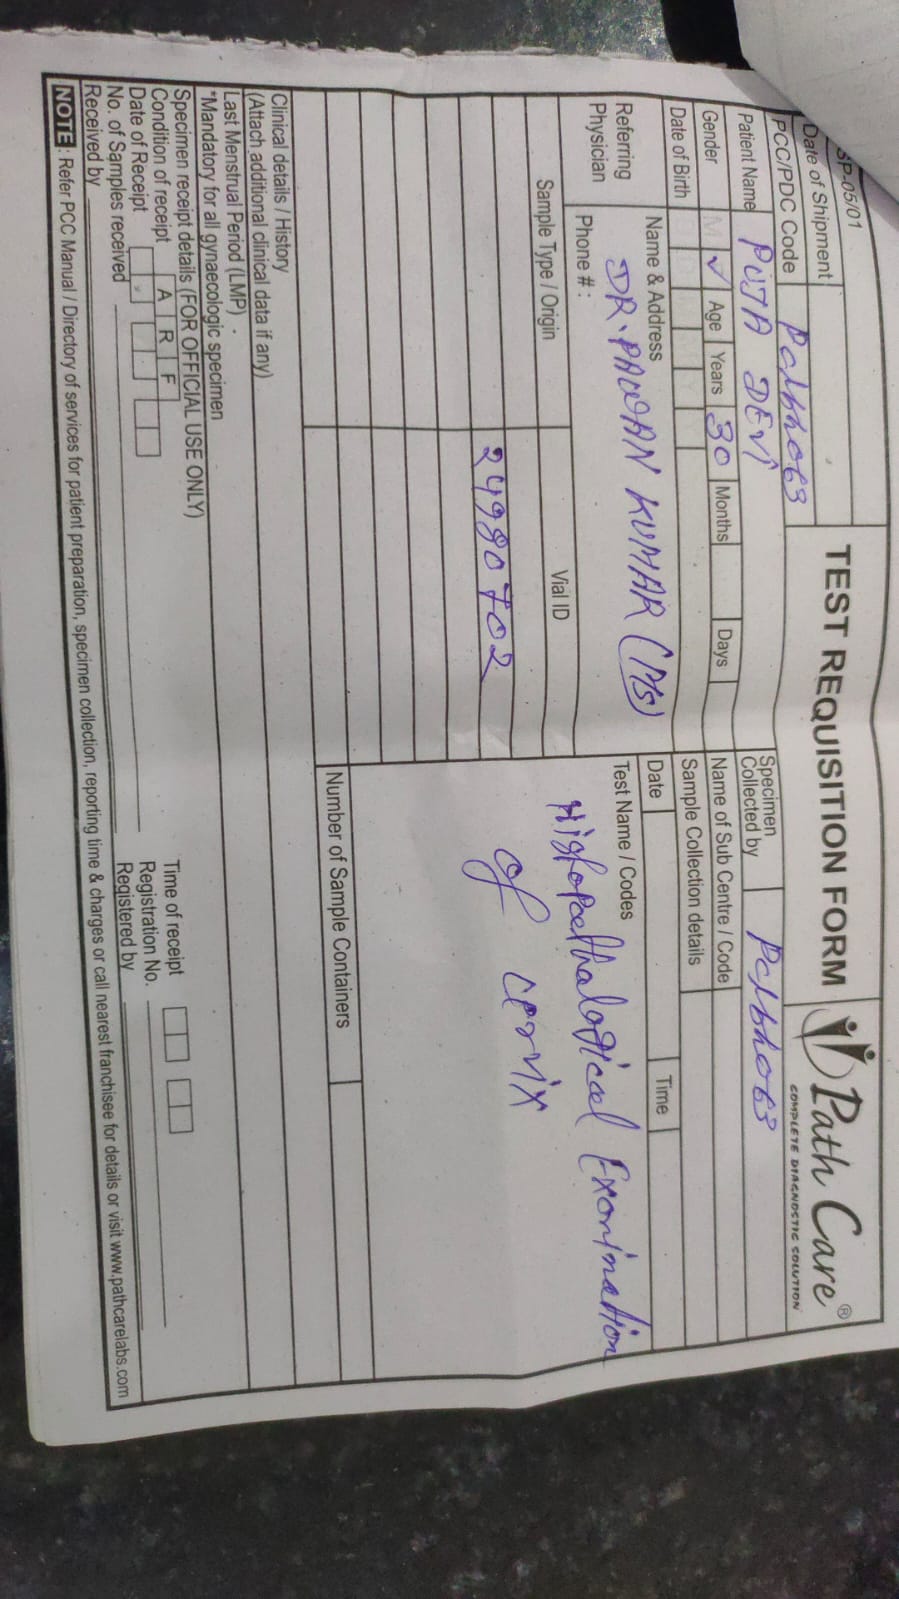 SP-05/01
TEST REQUISITION FORM
Path Care®
COMPLETE DIAGNOSTIC SOLUTION
Date of Shipment
PCC/PDC Code
Patient Name PUJA DEVI
Specimen Collected by
Gender M ✓ Age Years 30 Months Days
Name of Sub Centre / Code
Date of Birth
Sample Collection details
Referring Physician
Name & Address
DR. PAWAN KUMAR (MS)
Phone # :
Date Time
Test Name / Codes
Histopathalogical Exomination
of cervix
Sample Type / Origin Vial ID
24980702
Number of Sample Containers
Clinical details / History
(Attach additional clinical data if any)
Last Menstrual Period (LMP)
*Mandatory for all gynaecologic specimen
Specimen receipt details (FOR OFFICIAL USE ONLY)
Condition of receipt A R F
Time of receipt
Date of Receipt
Registration No.
No. of Samples received
Registered by
Received by
NOTE : Refer PCC Manual / Directory of services for patient preparation, specimen collection, reporting time & charges or call nearest franchisee for details or visit www.pathcarelabs.com